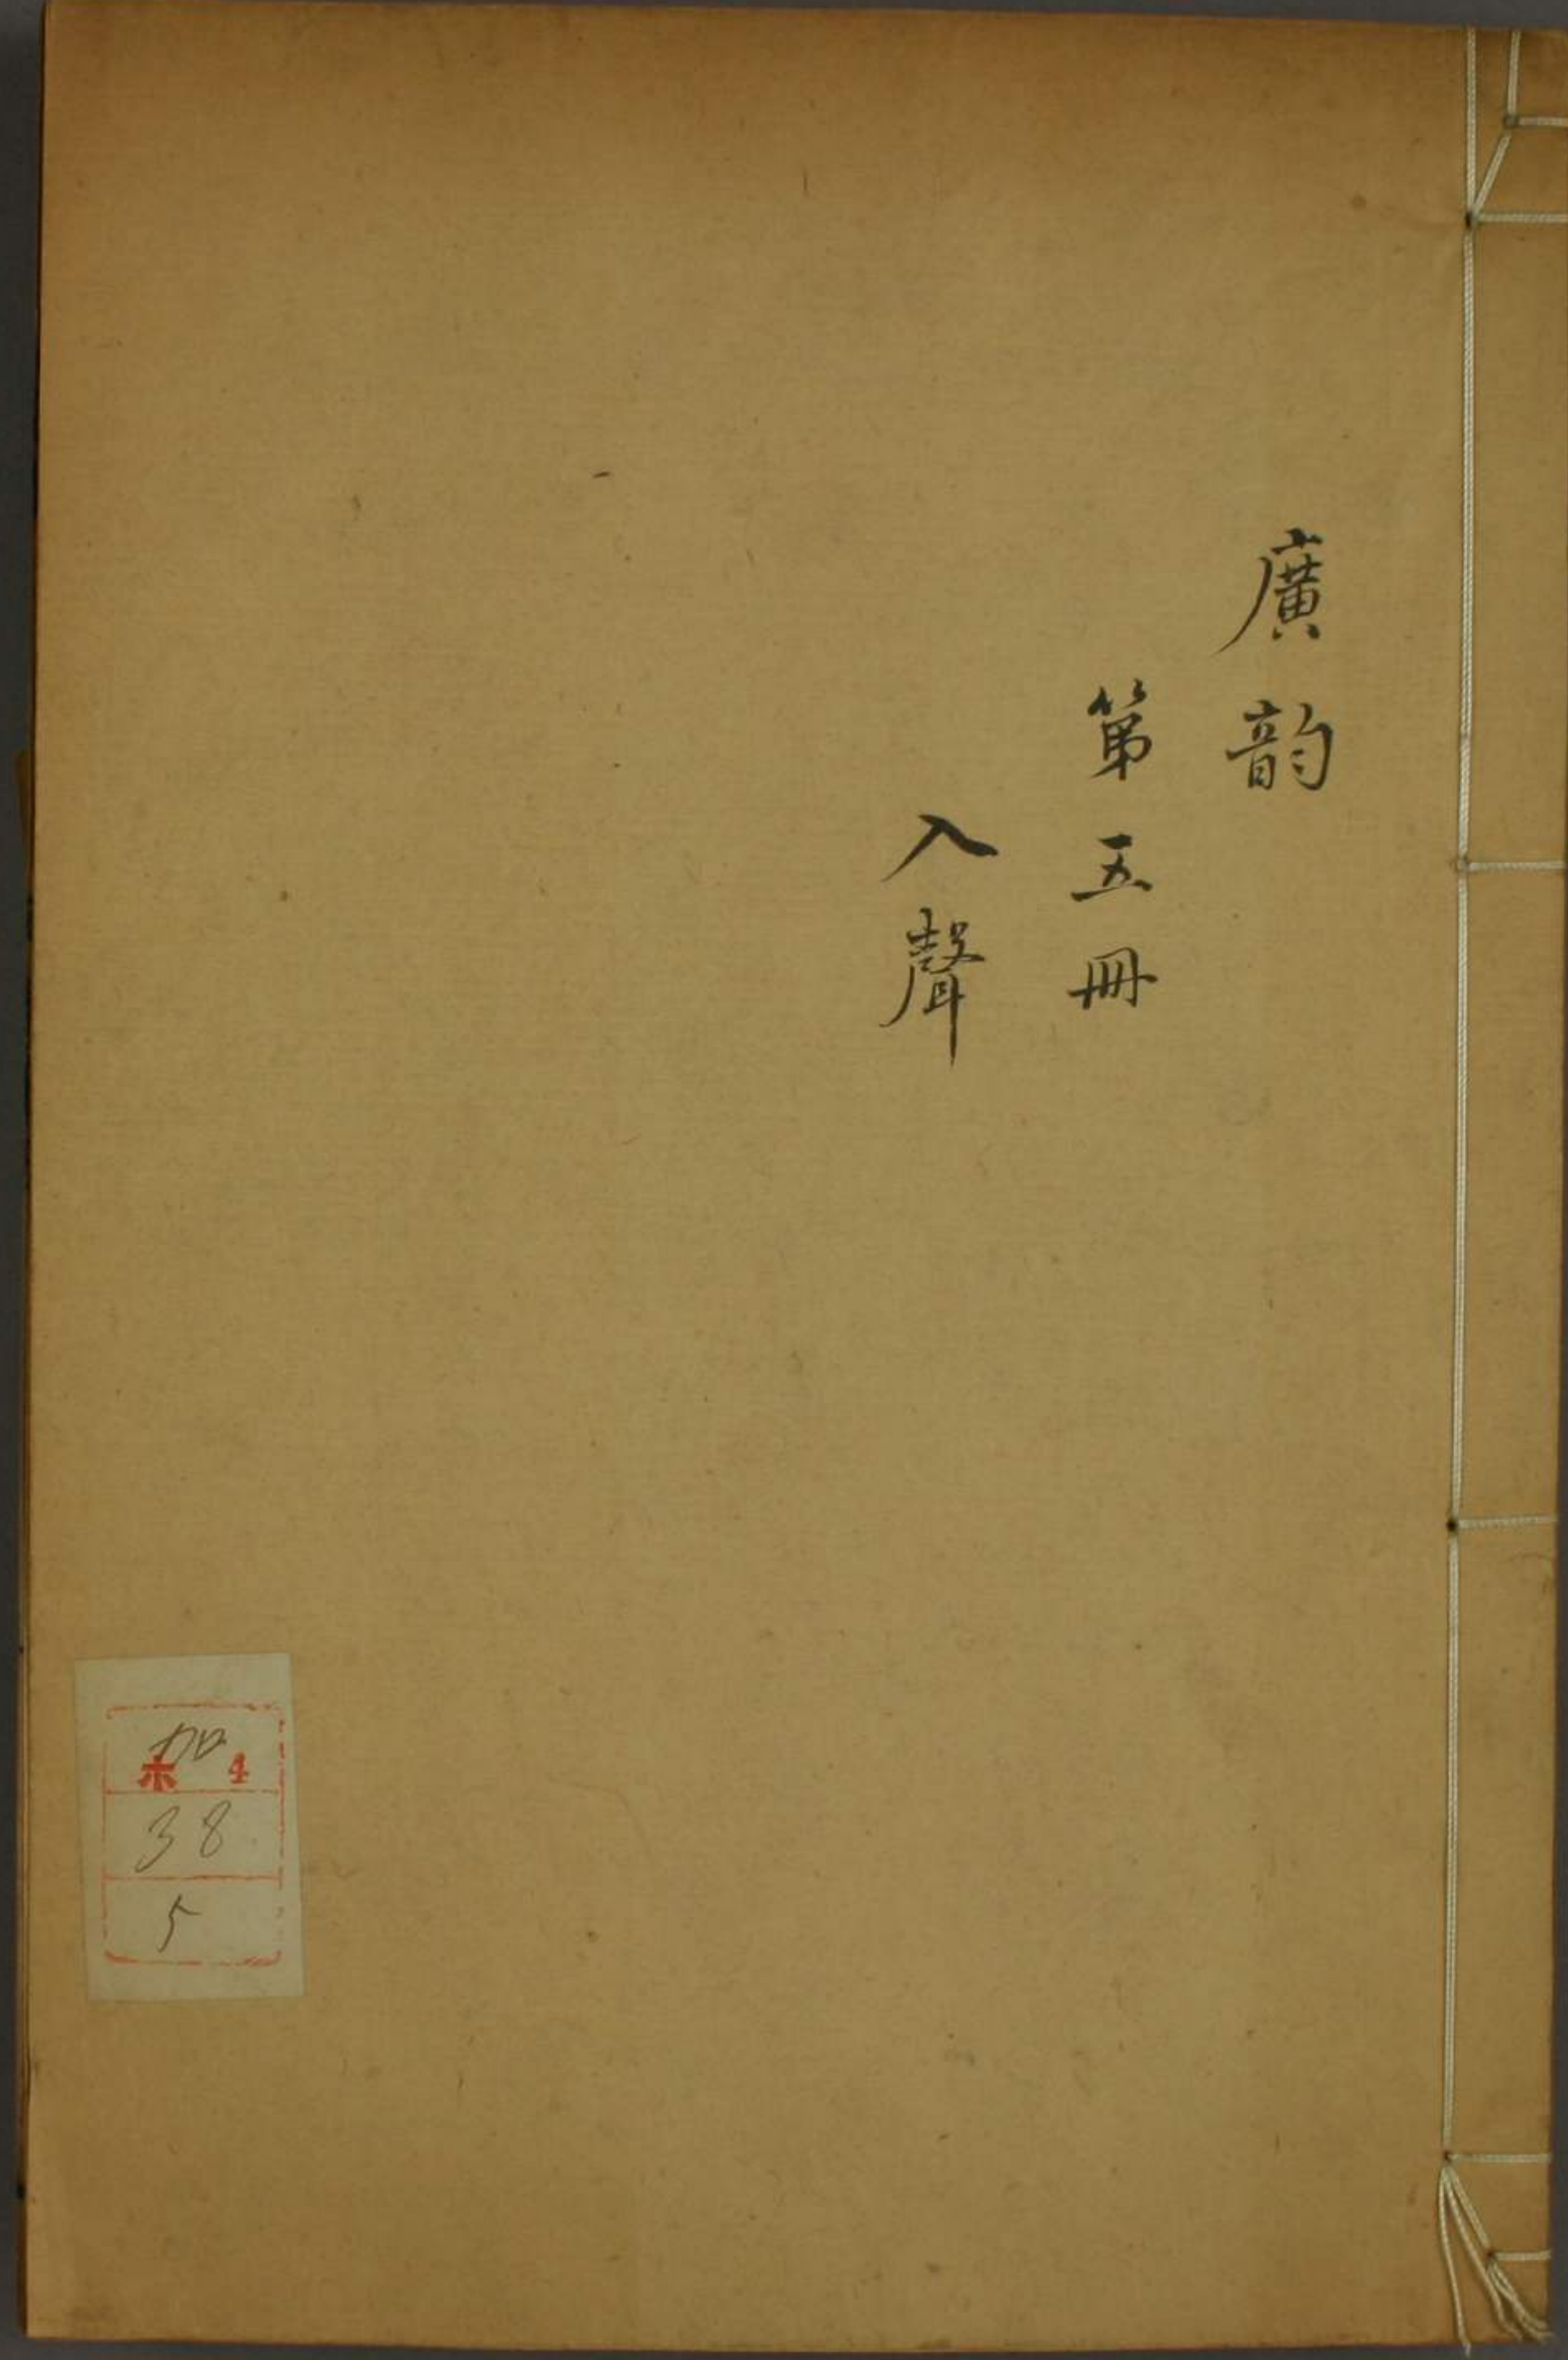 廣韵
第五冊
入聲
ホ 4
38
5